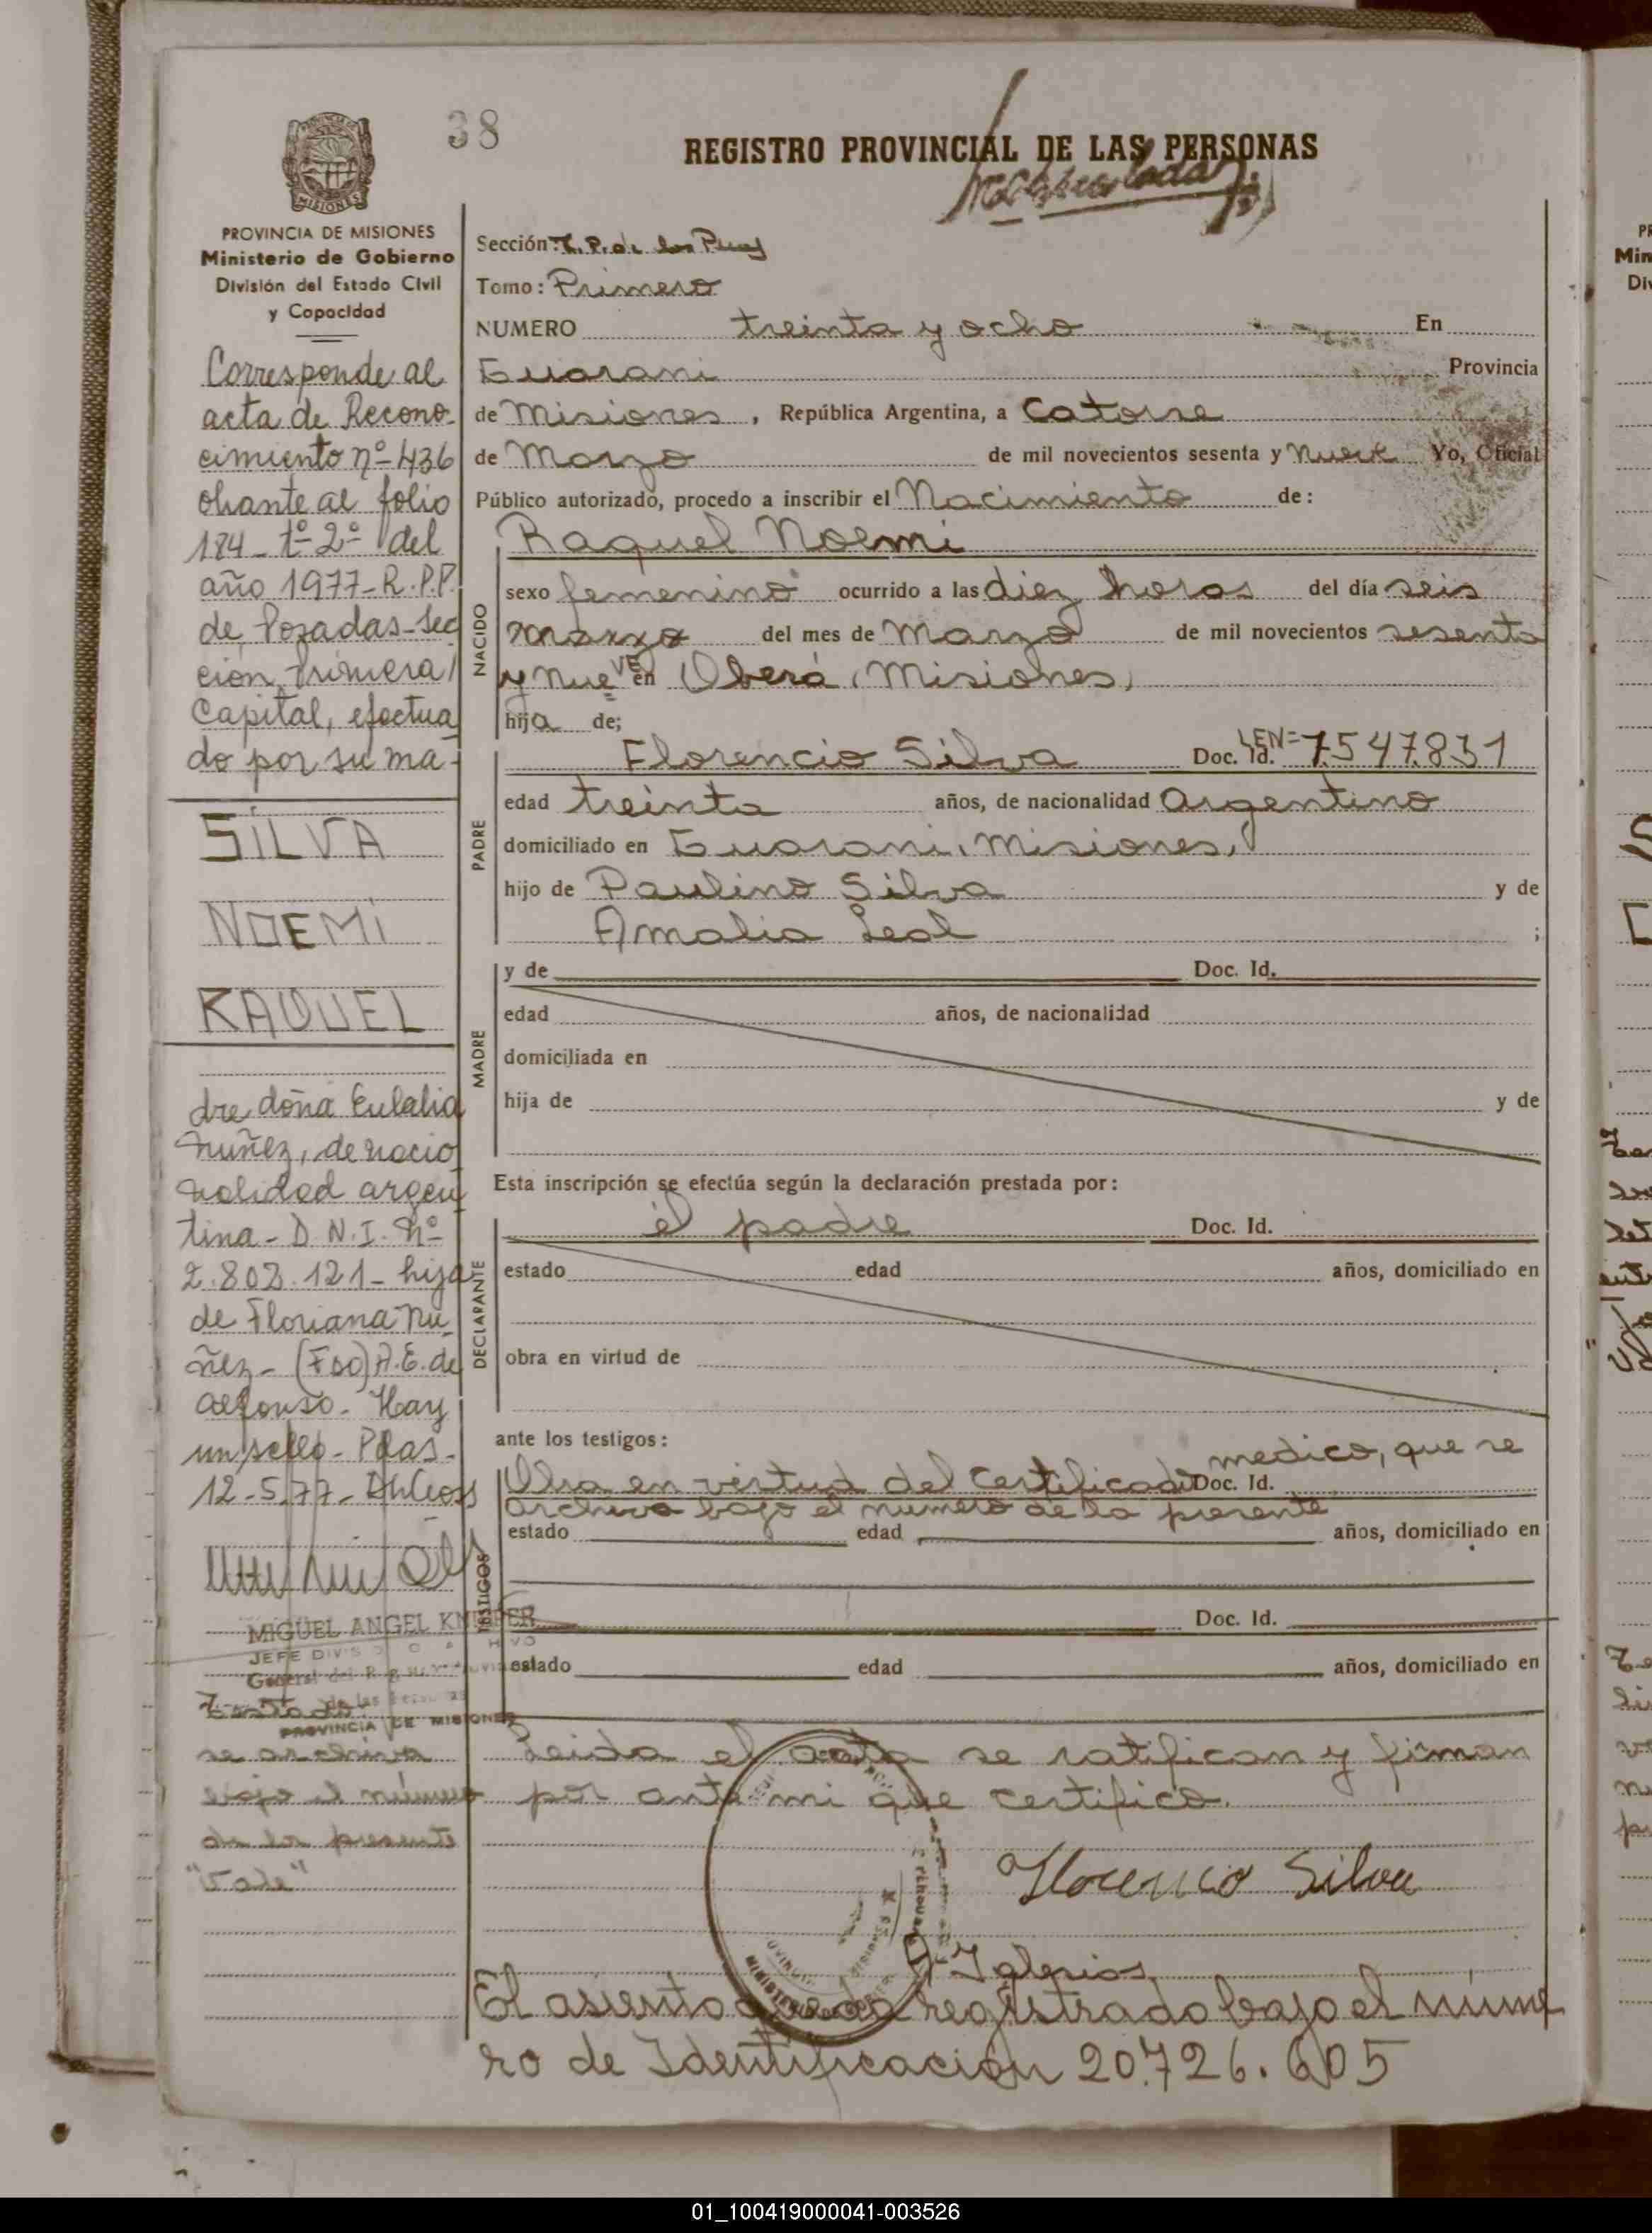 38
REGISTRO PROVINCIAL DE LAS PERSONAS
MISIONES
PROVINCIA DE MISIONES
Ministerio de Gobierno
División del Estado Civil
y Capacidad
Corresponde al
acta de Recono-
cimiento nº 436
obrante al folio
184 - tº 2º del
año 1977 - R.P.P.
de Posadas - Sec
ción Primera
Capital, efectua
do por su ma-
SILVA
NOEMI
RAQUEL
dre doña Eulalia
Nuñez, de nacio
nalidad argen
tina - D.N.I. Nº
2.803.121 - hija
de Floriana Nu
ñez - (Fdo) A.E. de
Alfonso. Hay
un sello - Pdas -
12-5-77 -
MIGUEL ANGEL
JEFE
General del
de las Personas
PROVINCIA DE MISIONES
Testado
se archiva
bajo el número
de la presente
"Vale"
Sección:
Tomo: Primero
NUMERO treinta y ocho En
Guarani Provincia
de Misiones, República Argentina, a Catorse
de Marzo de mil novecientos sesenta y Nueve Yo, Oficial
Público autorizado, procedo a inscribir el Nacimiento de:
Raquel Noemi
NACIDO
sexo femenino ocurrido a las diez horas del día seis
marzo del mes de Marzo de mil novecientos sesenta
y nueve en Oberá, Misiones,
hija de;
PADRE
Florencio Silva Doc. Id. LEN= 7.547.831
edad treinta años, de nacionalidad Argentino
domiciliado en Guarani, Misiones,
hijo de Paulino Silva y de
Amalia Leal ;
MADRE
y de Doc. Id.
edad años, de nacionalidad
domiciliada en
hija de y de
Esta inscripción se efectúa según la declaración prestada por:
DECLARANTE
el padre Doc. Id.
estado edad años, domiciliado en
obra en virtud de
ante los testigos:
TESTIGOS
Obra en virtud del Certificado medico, que se Doc. Id.
archiva bajo el numero de la presente
estado edad años, domiciliado en
Doc. Id.
estado edad años, domiciliado en
Leida el acta se ratifican y firman
por ante mi que certifico.
Florencio Silva
Iglesias
El asiento queda registrado bajo el núme
ro de Identificación 20.726.605
01_100419000041-003526